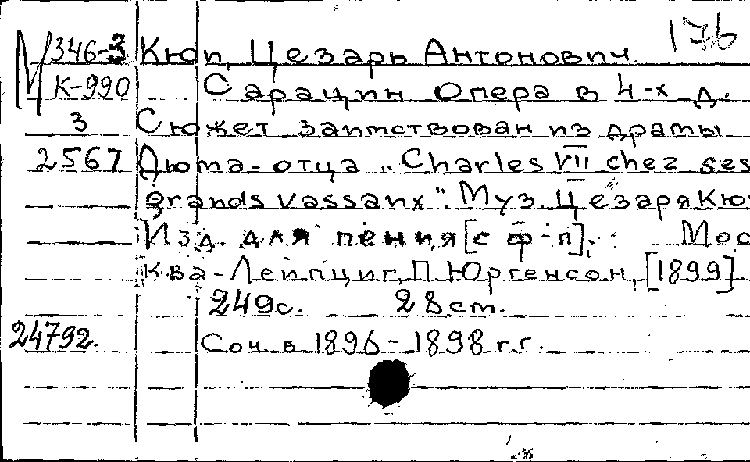 176
346-3 Кюи, Цезарь Антонович
К-990 Сарацин Опера в 4-х д.
3 Сюжет заимствован из драмы
2567 Дюма-отца „Charles VII chez ses
grands vassaux". Муз. Цезаря Кю
Изд. для пения [с ф-п]. Мос
ква-Лейпциг, П. Юргенсон, [1899]
249с. 28 ст.
24792. Соч. в 1896-1898 г.г.